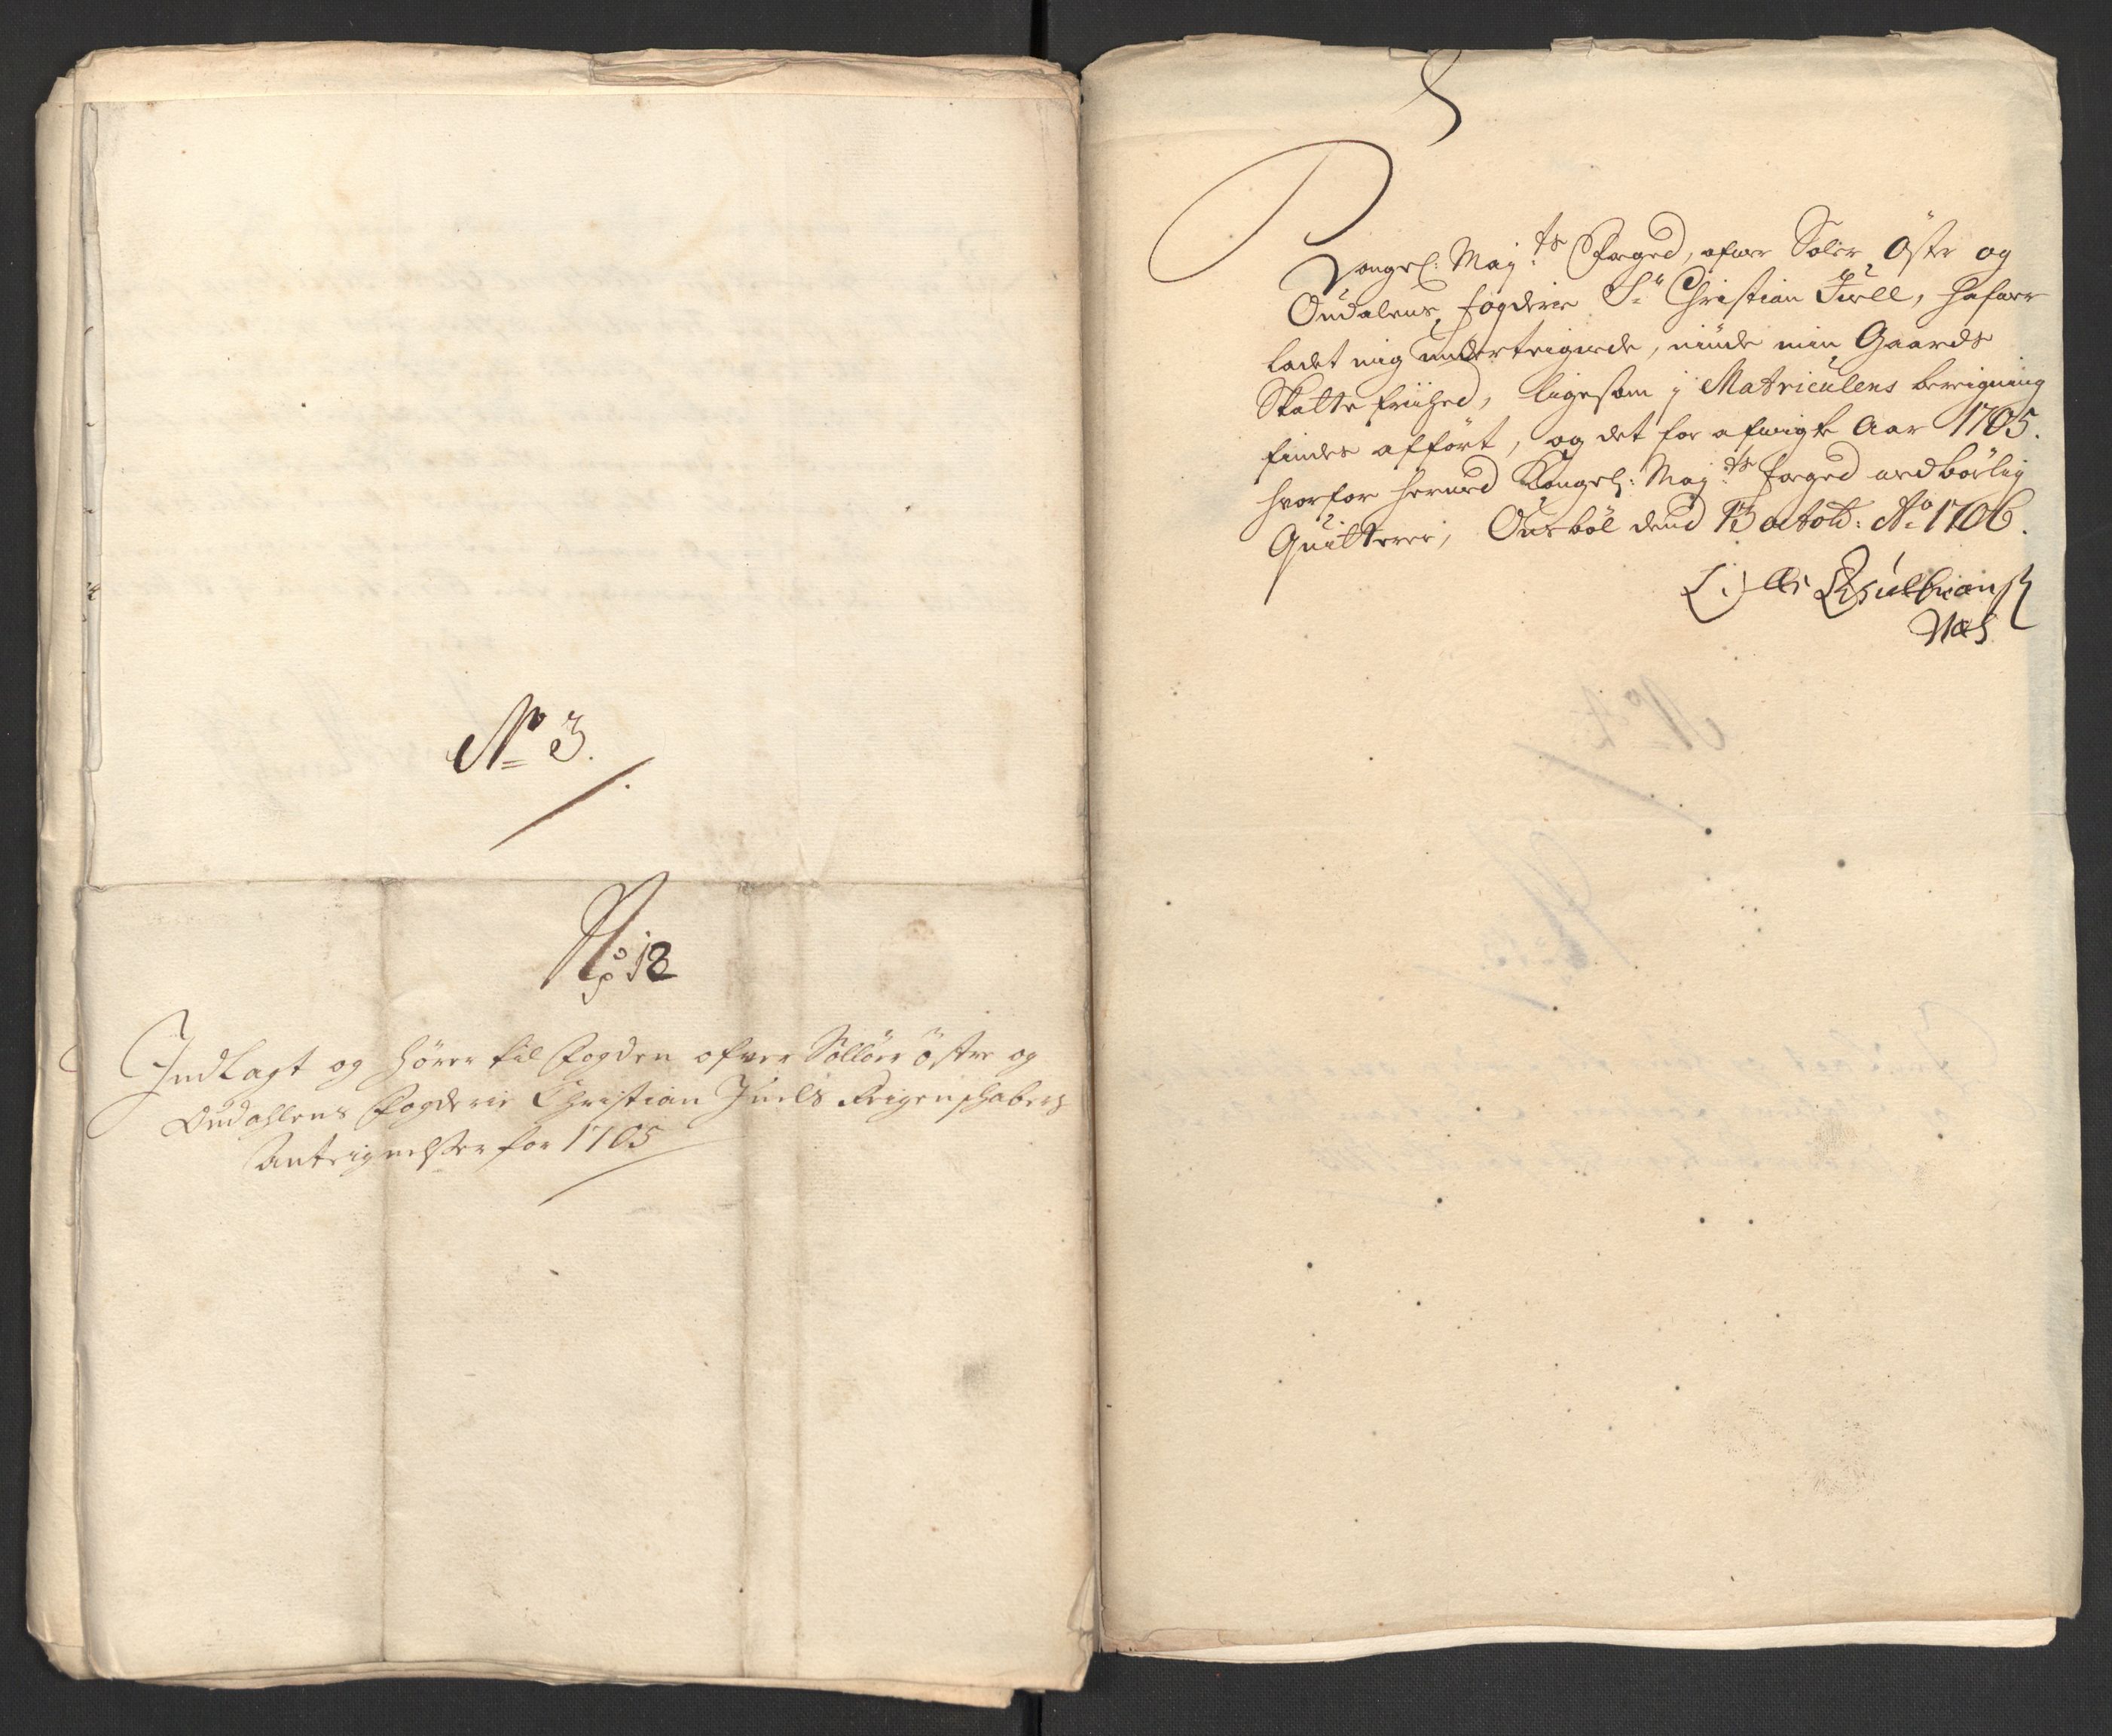 No 3.
No 12
Indlagt og hører til Fogden ofver Sollöer östre og
Oudahlens Fogderie Christian Juels Reigenschabers
Anteignelser for 1705
Kongel: May:ts Foeged, ofver Soler, Östr og
Oudalens, fogderie Sr Christian Juell, hafuer
ladet mig underteignede, niüde min Gaards
Skatte friihed, ligesom j Matriculens bereigning
findes afført, og det for afvigte Aar 1705.
hvorfor hermed Kongel: May:ts foeged ved börlig
Quitterer, Ousböl dend 13 octob: Ao 1706.